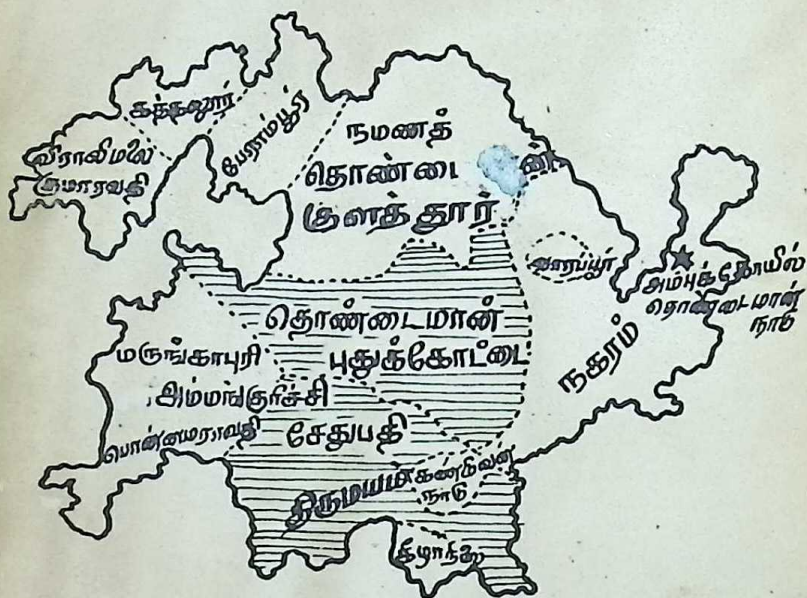 கத்தலூர்
பேராம்பூர்
விராலிமலை
குமாரவதி
நமணத்
தொண்டை
குளத்தூர்
வாரப்பூர்
அம்புக்கோயில்
தொண்டைமான்
நாடு
தொண்டைமான்
புதுக்கோட்டை
நகரம்
மருங்காபுரி
அம்மங்குரிச்சி
பொன்னமராவதி
சேதுபதி
திருமயம்
கண்மிவன
நாடு